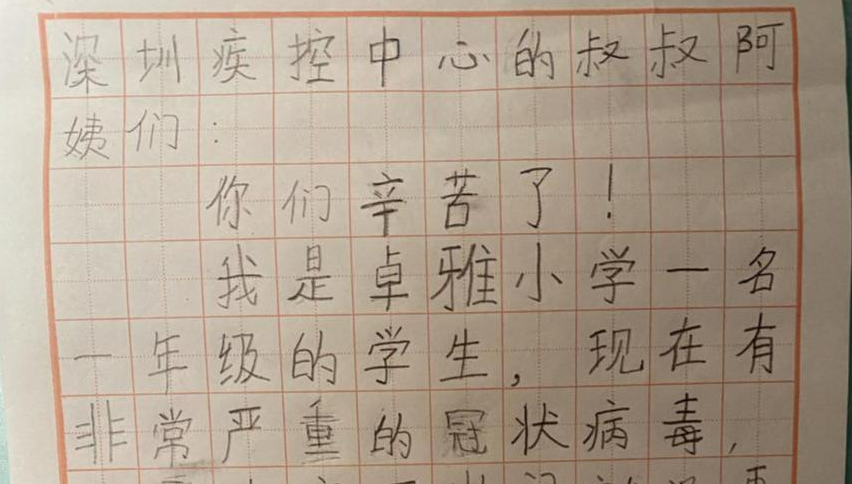 深圳疾控中心的叔叔阿
姨们：
你们辛苦了！
我是卓雅小学一名
一年级的学生，现在有
非常严重的冠状病毒，